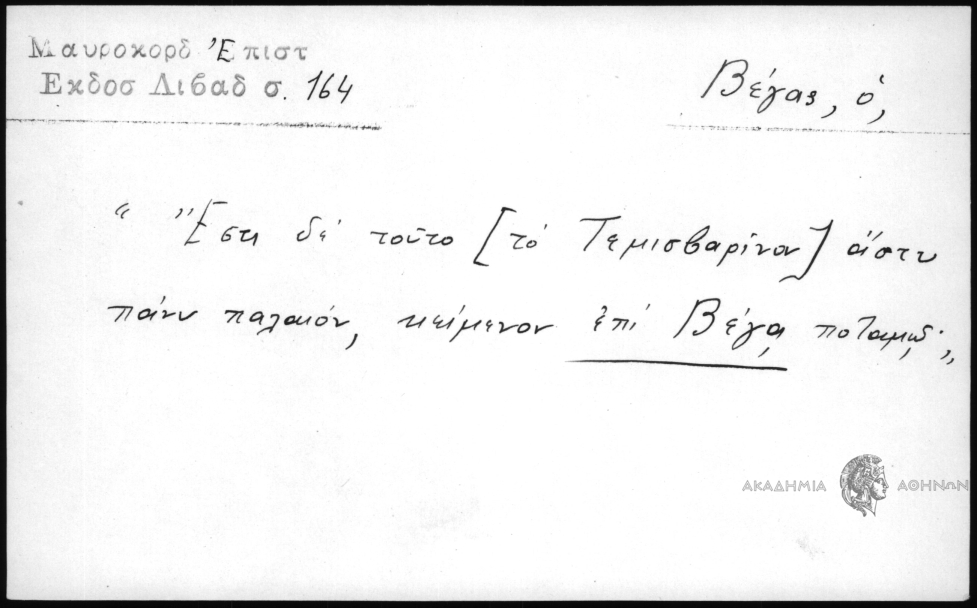 Μαυροκορδ Ἐπιστ
Εκδοσ Λιβαδ σ. 164
Βέγας, ὁ,
“ Ἔστι δέ τοῦτο [τό Τεμισβαρίναν] ἄστυ
πάνυ παλαιόν, κείμενον ἐπί Βέγᾳ ποταμῷ·„
ΑΚΑΔΗΜΙΑ ΑΘΗΝΩΝ